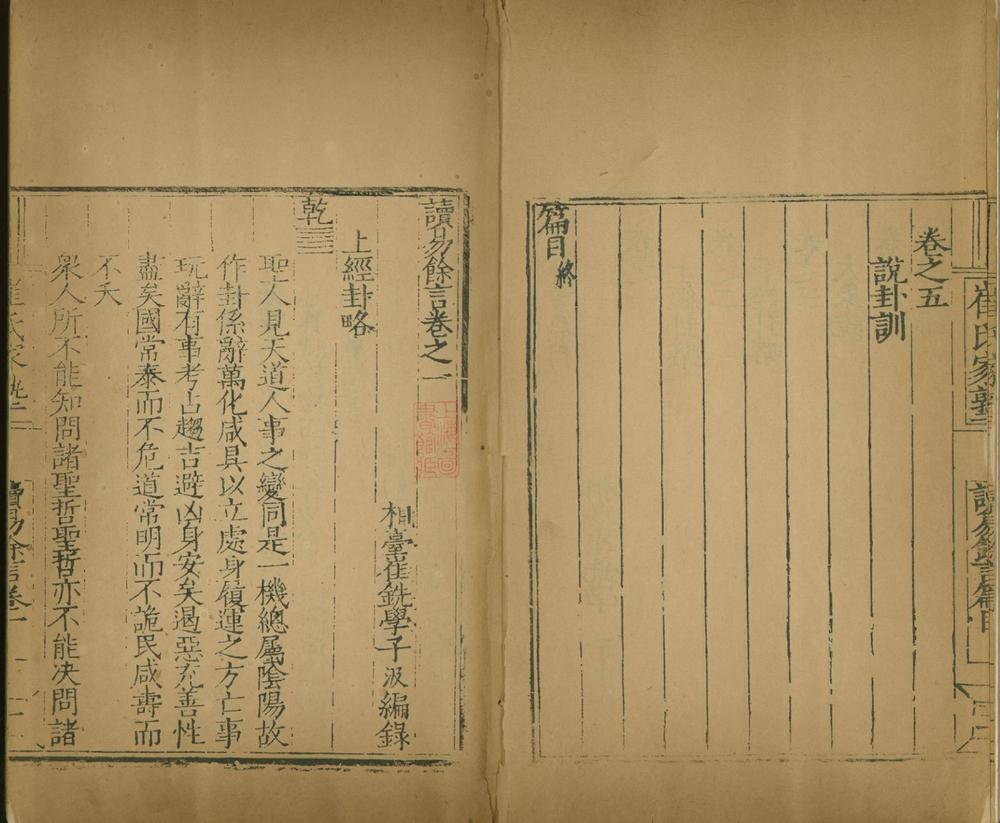 崔氏家塾
讀易餘言篇目
卷之五
說卦訓
篇目終
讀易餘言卷之一
相臺崔銑學子汲編錄
上經卦略
乾
聖人見天道人事之變同是一機總屬陰陽故
作卦係辭萬化咸具以立處身履運之方亡事
玩辭有事考占趨吉避凶身安矣遏惡充善性
盡矣國常泰而不危道常明而不詭民咸壽而
不夭
衆人所不能知問諸聖哲聖哲亦不能决問諸
崔氏家塾
讀易餘言卷一